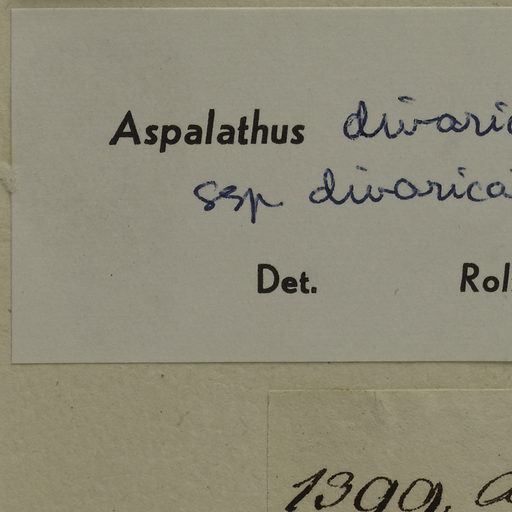 Aspalathus divaric
ssp divarica
Det. Rol
1399. a